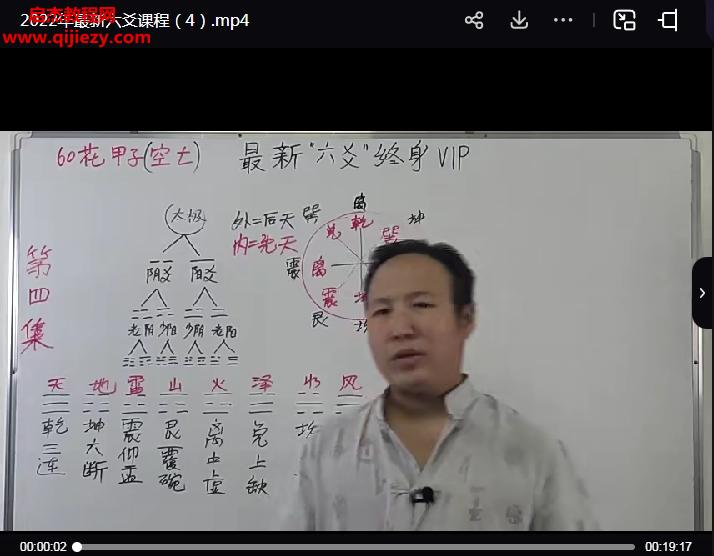 启杰教程网
2022年最新六爻课程（4）.mp4
www.qijiezy.com
60花甲子(空亡)
最新"六爻"终身VIP
第四集
太极
阴爻 阳爻
老阴 少阳 少阴 老阳
外=后天
内=先天
离
乾
巽
兑
坤
巽
震
离
震
艮
坎
天 地 雷 山 火 泽 水 风
乾三连
坤六断
震仰盂
艮覆碗
离中虚
兑上缺
坎
00:00:02
00:19:17